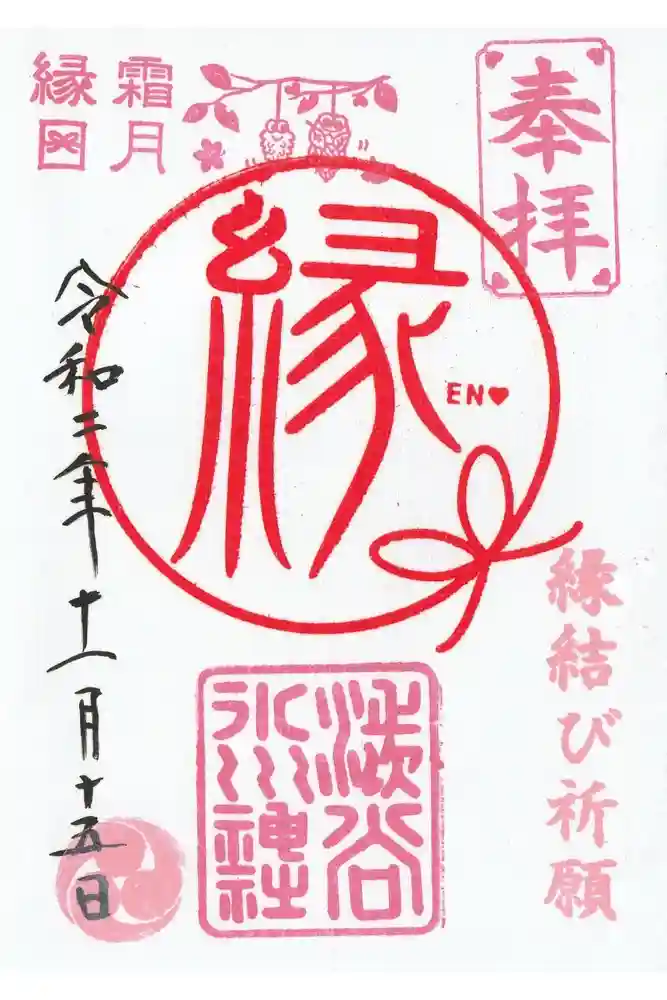 奉拝
霜月
縁日
縁
EN♥
縁結び祈願
澁谷
氷川神社
令和二年十一月十五日